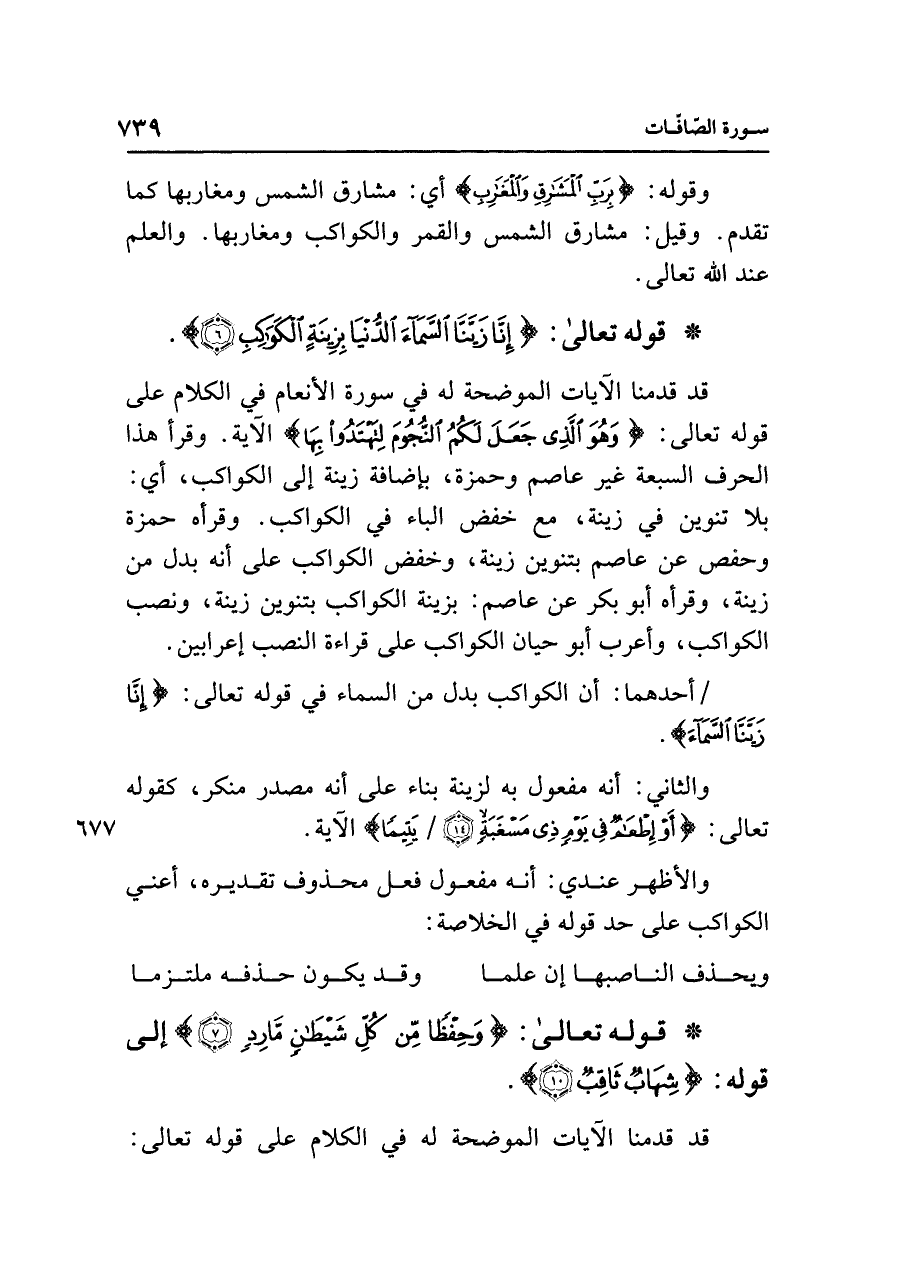 سـورة الصّافّـات ٧٣٩
وقوله: ﴿بِرَبِّ ٱلْمَشَٰرِقِ وَٱلْمَغَٰرِبِ﴾ أي: مشارق الشمس ومغاربها كما
تقدم. وقيل: مشارق الشمس والقمر والكواكب ومغاربها. والعلم
عند الله تعالى.
* قوله تعالىٰ: ﴿إِنَّا زَيَّنَّا ٱلسَّمَآءَ ٱلدُّنْيَا بِزِينَةٍ ٱلْكَوَاكِبِ ٦﴾.
قد قدمنا الآيات الموضحة له في سورة الأنعام في الكلام على
قوله تعالى: ﴿وَهُوَ ٱلَّذِى جَعَلَ لَكُمُ ٱلنُّجُومَ لِتَهْتَدُوا۟ بِهَا﴾ الآية. وقرأ هذا
الحرف السبعة غير عاصم وحمزة، بإضافة زينة إلى الكواكب، أي:
بلا تنوين في زينة، مع خفض الباء في الكواكب. وقرأه حمزة
وحفص عن عاصم بتنوين زينة، وخفض الكواكب على أنه بدل من
زينة، وقرأه أبو بكر عن عاصم: بزينة الكواكب بتنوين زينة، ونصب
الكواكب، وأعرب أبو حيان الكواكب على قراءة النصب إعرابين.
/ أحدهما: أن الكواكب بدل من السماء في قوله تعالى: ﴿إِنَّا
زَيَّنَّا ٱلسَّمَآءَ﴾.
والثاني: أنه مفعول به لزينة بناء على أنه مصدر منكر، كقوله
تعالى: ﴿أَوْ إِطْعَٰمٌ فِى يَوْمٍ ذِى مَسْغَبَةٍ ١٤ / يَتِيمًا﴾ الآية. ٦٧٧
والأظهـر عنـدي: أنـه مفعـول فعـل محـذوف تقـديـره، أعنـي
الكواكب على حد قوله في الخلاصة:
ويحـذف النـاصبهـا إن علمـا وقـد يكـون حـذفـه ملتـزمـا
* قـولـه تعـالـىٰ: ﴿وَحِفْظًا مِّن كُلِّ شَيْطَٰنٍ مَّارِدٍ ٧﴾ إلـى
قوله: ﴿شِهَابٌ ثَاقِبٌ ١٠﴾.
قد قدمنا الآيات الموضحة له في الكلام على قوله تعالى: